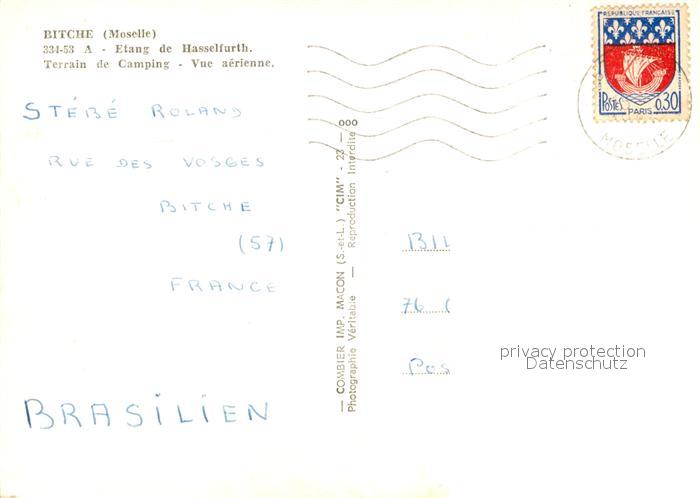 BITCHE (Moselle)
334-53 A - Etang de Hasselfurth.
Terrain de Camping - Vue aérienne.
STÉBÉ ROLAND
RUE DES VOSGES
BITCHE
(57)
FRANCE
BRASILIEN
— COMBIER IMP. MACON (S.-et-L.) "CIM" - 23 — 000
Photographie Véritable — Reproduction Interdite
REPUBLIQUE FRANÇAISE
POSTES 0,30
PARIS
MOSELLE
76
Pos
privacy protection
Datenschutz